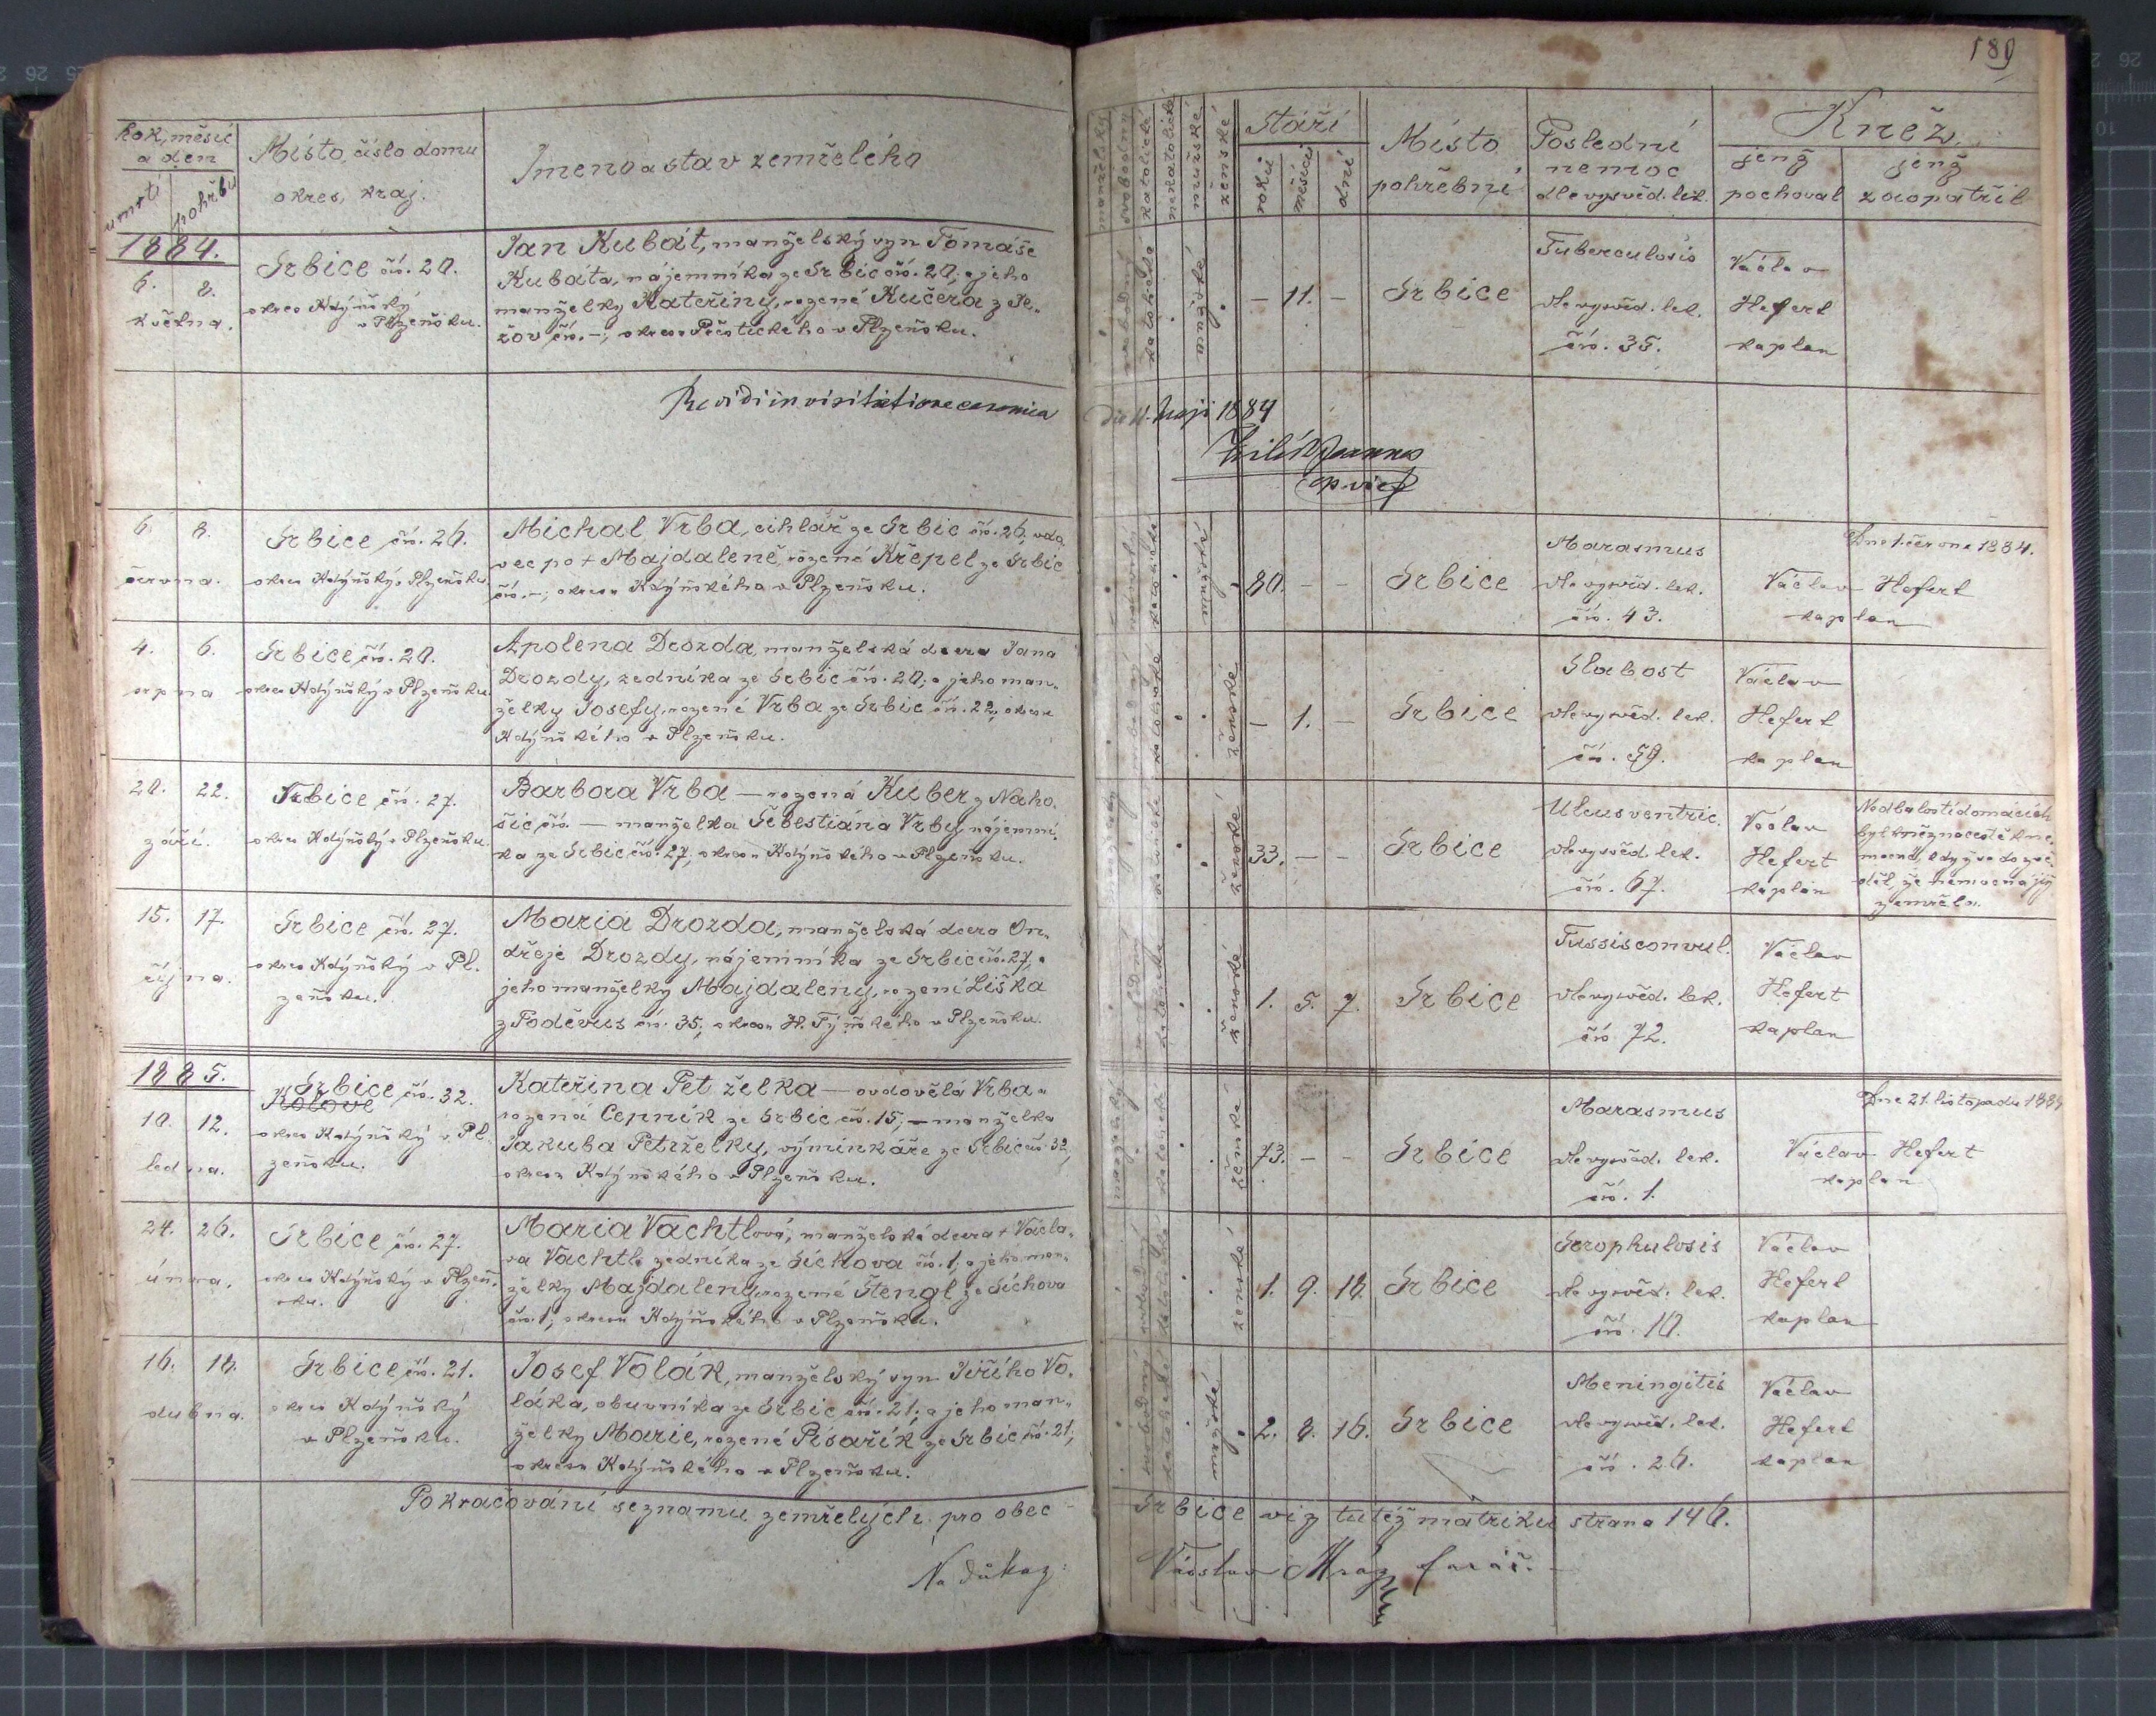 189
Rok, měsíc
a den
úmrtí
pohřbu
Místo, číslo domu
okres, kraj.
Jmeno a stav zemřelého
manželský
svobodný
katolické
nekatolické
mužské
ženské
Stáří
roků
měsíců
dní
Místo
pohřební
Poslední
nemoc
dle vysvěd. lék.
Kněz
jenž
pochoval
jenž
zaopatřil
1884.
6. 8.
května.
Srbice čís. 20.
okres Kdýňský
v Plzeňsku.
Jan Kubát, manželský syn Tomáše
Kubáta, nájemníka ze Srbic čís. 20; a jeho
manželky Kateřiny, rozené Kučera z Je-
žov čís. –, okresu Přeštického v Plzeňsku.
svobodný
katolické
mužské
– 11. –
Srbice
Tuberculosis
dle vysvěd. lék.
čís. 35.
Václav
Hefert
kaplan
Revidi in visitatione canonica
die 11. Maji 1884
6. 8.
června.
Srbice čís. 26.
okres Kdýňský v Plzeňsku
Michal Vrba, cihlář ze Srbic čís. 26, vdo-
vec po + Majdaleně, rozené Křepel ze Srbic
čís. –; okresu Kdýňského v Plzeňsku.
katolické
mužské
80. – –
Srbice
Marasmus
dle vysvěd. lék.
čís. 43.
Dne 1. června 1884.
Václav Hefert
kaplan
4. 6.
srpna
Srbice čís. 20.
okres Kdýňský v Plzeňsku
Apolena Drozda, manželská dcera Jana
Drozdy, zedníka ze Srbic čís. 20; a jeho man-
želky Josefy, rozené Vrba ze Srbic čís. 22, okresu
Kdýňského v Plzeňsku.
svobodný
katolické
ženské
– 1. –
Srbice
Slabost
dle vysvěd. lék.
čís. 59.
Václav
Hefert
kaplan
20. 22.
září.
Srbice čís. 27.
okres Kdýňský v Plzeňsku.
Barbora Vrba – rozená Kuber z Naho-
šic čís. – manželka Šebestiána Vrby, nájemní-
ka ze Srbic čís. 27, okresu Kdýňského v Plzeňsku.
katolické
ženské
33. – –
Srbice
Ulcus ventric.
dle vysvěd. lék.
čís. 67.
Václav
Hefert
kaplan
Nedbalostí domácích
byl kněz na cestě k ne-
mocné, když se dozvě-
děl, že nemocná již
zemřela.
15. 17.
října.
Srbice čís. 27.
okres Kdýňský v Pl-
zeňsku.
Maria Drozda, manželská dcera On-
dřeje Drozdy, nájemníka ze Srbic čís. 27, a
jeho manželky Majdaleny, rozené Liška
z Poděvus čís. 35, okresu H. Týnského v Plzeňsku.
svobodný
katolické
ženské
1. 5. 7.
Srbice
Tussis convul.
dle vysvěd. lék.
čís. 72.
Václav
Hefert
kaplan
1885.
10. 12.
ledna.
Srbice čís. 32.
Kolové
okres Kdýňský v Pl-
zeňsku.
Kateřina Petrželka – ovdovělá Vrba –
rozená Cepník ze Srbic čís. 15; – manželka
Jakuba Petrželky, výminkáře ze Srbic čís. 32,
okresu Kdýňského v Plzeňsku.
manželský
katolické
ženské
73. – –
Srbice
Marasmus
dle vysvěd. lék.
čís. 1.
Dne 21. listopadu 1884
Václav Hefert
kaplan
24. 26.
února.
Srbice čís. 27.
okres Kdýňský v Plzeň-
sku.
Maria Vachtlová, manželská dcera + Václa-
va Vachtla zedníka ze Sichova čís. 1; a jeho man-
želky Majdaleny, rozené Štengl ze Sichova
čís. 1, okresu Kdýňského v Plzeňsku.
svobodný
katolické
ženské
1. 9. 18.
Srbice
Scrophulosis
dle vysvěd. lék.
čís. 10.
Václav
Hefert
kaplan
16. 18.
dubna.
Srbice čís. 21.
okres Kdýňský
v Plzeňsku.
Josef Volák, manželský syn Jiřího Vo-
láka, obuvníka ze Srbic čís. 21; a jeho man-
želky Marie, rozené Pisařík ze Srbic čís. 21,
okresu Kdýňského v Plzeňsku.
svobodný
katolické
mužské
2. 8. 16.
Srbice
Meningitis
dle vysvěd. lék.
čís. 26.
Václav
Hefert
kaplan
Pokračování seznamu zemřelých pro obec
Srbice viz tutéž matriku strana 146.
Na důkaz:
Václav Mráz farář.